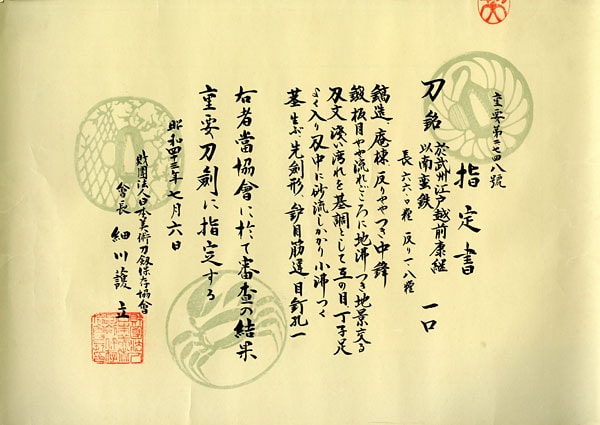 指定書
刀 銘 於武州江戸越前康継 一口
以南蛮鉄
長 六六・〇糎 反り一・八糎
鎬造 庵棟 反りややつき 中鋒
鍛 板目やや流れごころに地沸つき 地景交る
刃文 浅い湾れを基調として互の目 丁子足
よく入り 刃中に砂流しかかり 小沸つく
茎 生ぶ 先剣形 鑢目筋違 目釘孔一
右者當協會に於て審査の結果
重要刀剣に指定する
昭和四十三年七月六日
財團法人日本美術刀剣保存協會
會長 細川護立